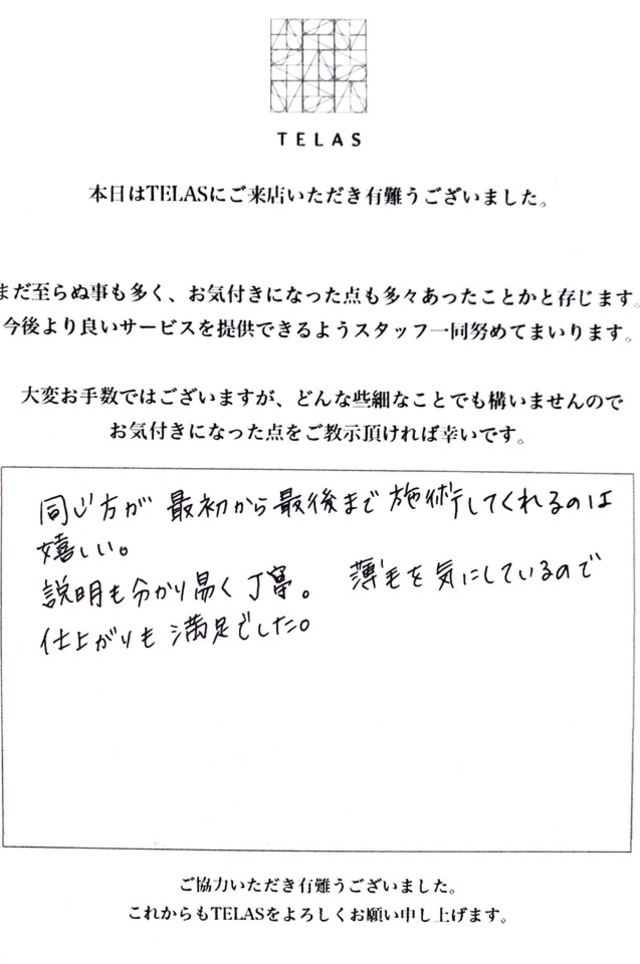 TELAS
本日はTELASにご来店いただき有難うございました。
まだ至らぬ事も多く、お気付きになった点も多々あったことかと存じます。
今後より良いサービスを提供できるようスタッフ一同努めてまいります。
大変お手数ではございますが、どんな些細なことでも構いませんので
お気付きになった点をご教示頂ければ幸いです。
同じ方が 最初から最後まで 施術してくれるのは
嬉しい。
説明も分かり易く丁寧。 薄毛を気にしているので
仕上がりも満足でした。
ご協力いただき有難うございました。
これからもTELASをよろしくお願い申し上げます。